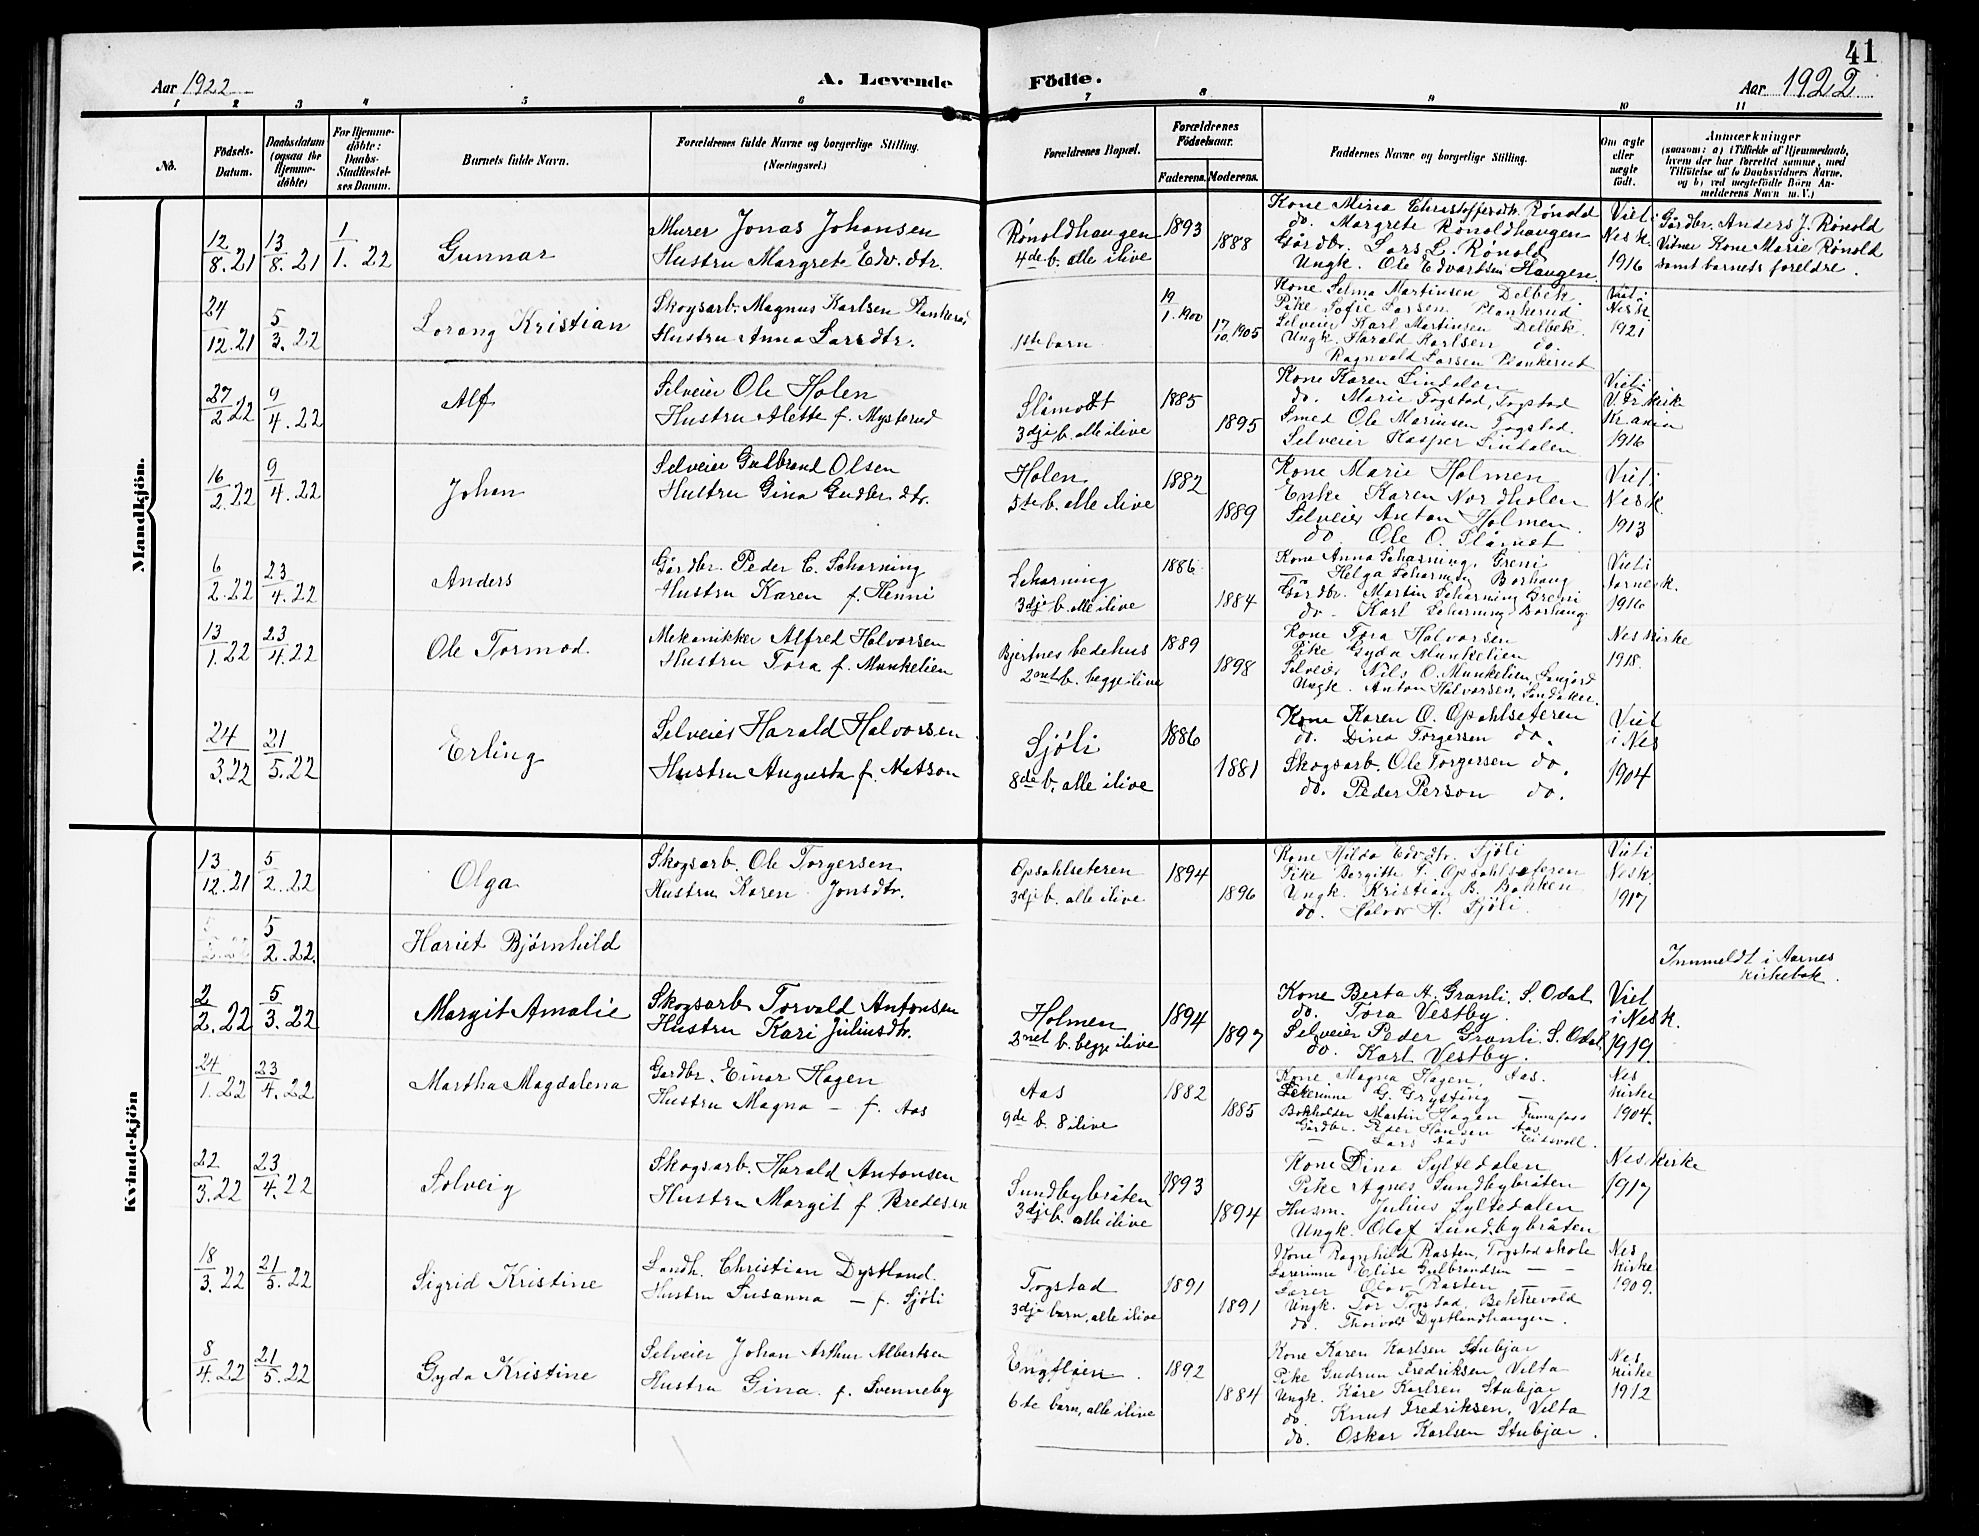 41
Aar 1922
A. Levende Födte.
Aar 1922
1 2 3 4 5 6 7 8 9 10 11
No.
Födsels-Datum.
Daabsdatum (ogsaa for Hjemme-döbte)
For Hjemme-döbte: Daabs-Stadfæstel-ses Datum.
Barnets fulde Navn.
Forældrenes fulde Navne og borgerlige Stilling. (Næringsvei.)
Forældrenes Bopæl.
Forældrenes Födselsaar.
Faderens. Moderens.
Faddernes Navne og borgerlige Stilling.
Om ægte eller uægte födt.
Anmærkninger
(saasom: a) i Tilfælde af Hjemmedaab, hvem der har forrettet samme, med Tilföielse af to Daabsvidners Navne, og b) ved uægtefödte Börn An-melderens Navn m. V.)
Mandkjön.
12/8.21 13/8.21 1/1.22 Gunnar
Murer Jonas Johansen
Hustru Margrete Edv.dtr.
Rønoldhaugen
4de b. alle ilive
1893 1888
Kone Mina Christoffersdtr. Rønold
do. Margrete Rønoldhaugen
Gårdbr. Lars L. Rønold
Ungk. Ole Edvartsen Haugen
Viet i
Nes k.
1916
Gårdbr. Anders J. Rønold
Vitner Kone Marie Rønold
samt barnets foreldre.
24/12.21 5/3.22 Lorang Kristian
Skogsarb. Magnus Karlsen Plankerud
Hustru Anna Larsdtr.
1ste barn
19/1.1900 17/10.1905
Kone Selma Martinsen Delbek
Pike Sofie Larsen Plankerud
Selveier Karl Martinsen Delbek
Ungk. Harald Karlsen do.
Ragnvald Larsen Plankerud
Viet i
Nes k
1921
27/2.22 9/4.22 Alf
Selveier Ole Holen
Hustru Alette f. Mysterud
Slåmodt
3dje b. alle ilive
1885 1895
Kone Karen Lindalen
do. Marie Togstad, Togstad
Smed Ole Marinsen Togstad.
Selveier Kasper Lindalen
Viet i
V. Fr kirke
Kr.ania
1916
16/2.22 9/4.22 Johan
Selveier Gulbrand Olsen
Hustru Gina Gudbr.dtr.
Holen
5te b. alle ilive
1882 1889
Kone Marie Holmen
Enke Karen Nordholen
Selveier Anton Holmen
do Ole O. Slåmot
Viet i
Nes k.
1913
6/2.22 23/4.22 Anders
Gårdbr. Peder C. Scharning
Hustru Karen f. Henni
Scharning
3dje b. alle ilive
1886 1884
Kone Anna Scharning, Greni
— Helga Scharning Borhaug
Gårdbr. Martin Scharning Greni
do. Karl Scharning Borhaug
Viet i
Aarnes k.
1916
13/1.22 23/4.22 Ole Tormod.
Mekanikker Alfred Halvorsen
Hustru Tora f. Munkelien
Bjertnes bedehus
2net b. begge ilive
1889 1898
Kone Tora Halvorsen
Pike Gyda Munkelien
Selveier Nils O. Munkelien
Ungk. Anton Halvorsen, Sandaker.
Nes kirke
1918.
24/3.22 21/5.22 Erling
Selveier Harald Halvorsen
Hustru Augusta f. Matson
Sjöli
8de b. alle ilive
1886 1881
Kone Karen O. Opahlseteren
do. Dina Torgersen do.
Skogsarb. Ole Torgersen do.
do. Peder Person do.
Viet
i Nes
1904
Kvindekjön
13/12.21 5/2.22 Olga
Skogsarb. Ole Torgersen
Hustru Karen Jonsdtr.
Opsahlseteren
3dje b. alle ilive
1894 1896
Kone Hilda Edvdtr. Sjöli
Pike Bergitte T. Opsahlseteren
Ungk. Kristian B. Bakken
do. Halvor H. Sjöli
Viet i
Nes k
1917
5/2.22 Hariet Bjørnhild
Innmeldt i Aarnes
kirkebok.
2/2.22 5/3.22 Margit Amalie
Skogsarb. Torvald Antonsen
Hustru Kari Juliusdtr.
Holmen
2net b. begge ilive
1894 1897
Kone Berta A. Granli, S. Odal
do. Tora Vestby.
Selveier Peder Granli. S. Odal
do. Karl Vestby.
Viet
i Nes k.
1919.
24/1.22 23/4.22 Martha Magdalena
Gardbr. Einar Hagen
Hustru Magna — f. Aas
Aas
9de b. 8 ilive
1882 1885
Kone Magna Hagen, Aas.
G. Grysting —
Bokholder Martin Hagen
Gårdbr. Peder Hansen Aas
— Lars Aas Eidsvoll.
Nes
kirke
1904.
22/3.22 23/4.22 Solveig
Skogsarb. Harald Antonsen
Hustru Margit f. Bredesen
Sundbybråten
3dje b. alle ilive
1893 1894
Kone Dina Syltedalen
Pike Agnes Sundbybråten
Husm. Julius Syltedalen
Ungk. Olaf Sundbybråten
Nes kirke
1917
18/3.22 21/5.22 Sigrid Kristine
Landh. Christian Dystland.
Hustru Susanna — f. Sjöli
Togstad
3dje barn, alle ilive
1891 1891
Kone Ragnhild Rasten, Togstad skole
Lærerinne Elise Gulbrandsen — —
Lærer Olav Rasten — —
Ungk. Tor Togstad, Bekkevold
do. Thorvald Dystlandhaugen.
Nes
kirke
1909.
8/4.22 21/5.22 Gyda Kristine
Selveier Johan Arthur Albertsen
Hustru Gina f. Svenneby
Engfloen.
6te barn, alle ilive
1892 1884
Kone Karen Karlsen Stubjar
Pike Gudrun Fredriksen, Vilta
Ungk. Kåre Karlsen Stubjar
do. Knut Fredriksen, Vilta
do. Oskar Karlsen Stubjar.
Nes
kirke
1912